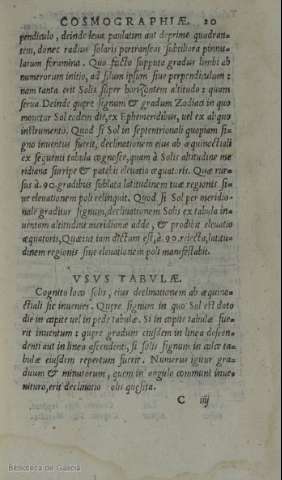 COSMOGRAPHIÆ. 20
pendiculo, deinde leua paulatim aut deprime quadran-
tem, donec radius solaris pertranseat subtiliora pinnu-
larum foramina. Quo facto supputa gradus limbi ab
numerorum initio, ad filum ipsum siue perpendiculum:
nam tanta erit Solis super horizontem altitudo: quam
serua. Deinde quære signum & gradum Zodiaci in quo
mouetur Sol eodem die, ex Ephemeridibus, vel ex abquo
instrumento. Quod si Sol in septentrionali quopiam si-
gno inuentus fuerit, declinationem eius ab æquinoctiali
ex sequenti tabula cognosce, quam à Solis altitudine me
ridiana surripe & patebit eleuatio æquatoris. Quæ rur-
sus à .90. gradibus sublata latitudinem tuæ regionis si-
ue eleuationem poli relinquit. Quod si Sol per meridio-
nale graditur signum, declinationem Solis ex tabula in-
uentam altitudini meridianæ adde, & prodibit eleuatio
æquatoris, Quæ vt iam dictum est, à .90. reiecta, latitu-
dinem regionis siue eleuationem poli manifestabit.
VSVS TABVLÆ.
Cognito loco solis, eius declinationem ab æquino-
ctiali sic inuenies. Quære signum in quo Sol est dato
die in capite vel in pede tabulæ. Si in capite tabulæ fue-
rit inuentum: quære gradum eiusdem in linea descen-
denti aut in linea ascendenti, si solis signum in calce ta-
bulæ eiusdem repertum fuerit. Numerus igitur gra-
duum & minutorum, quem in angulo communi inue-
nituro, erit declinatio olis quesita.
C iiij
Biblioteca de Galicia